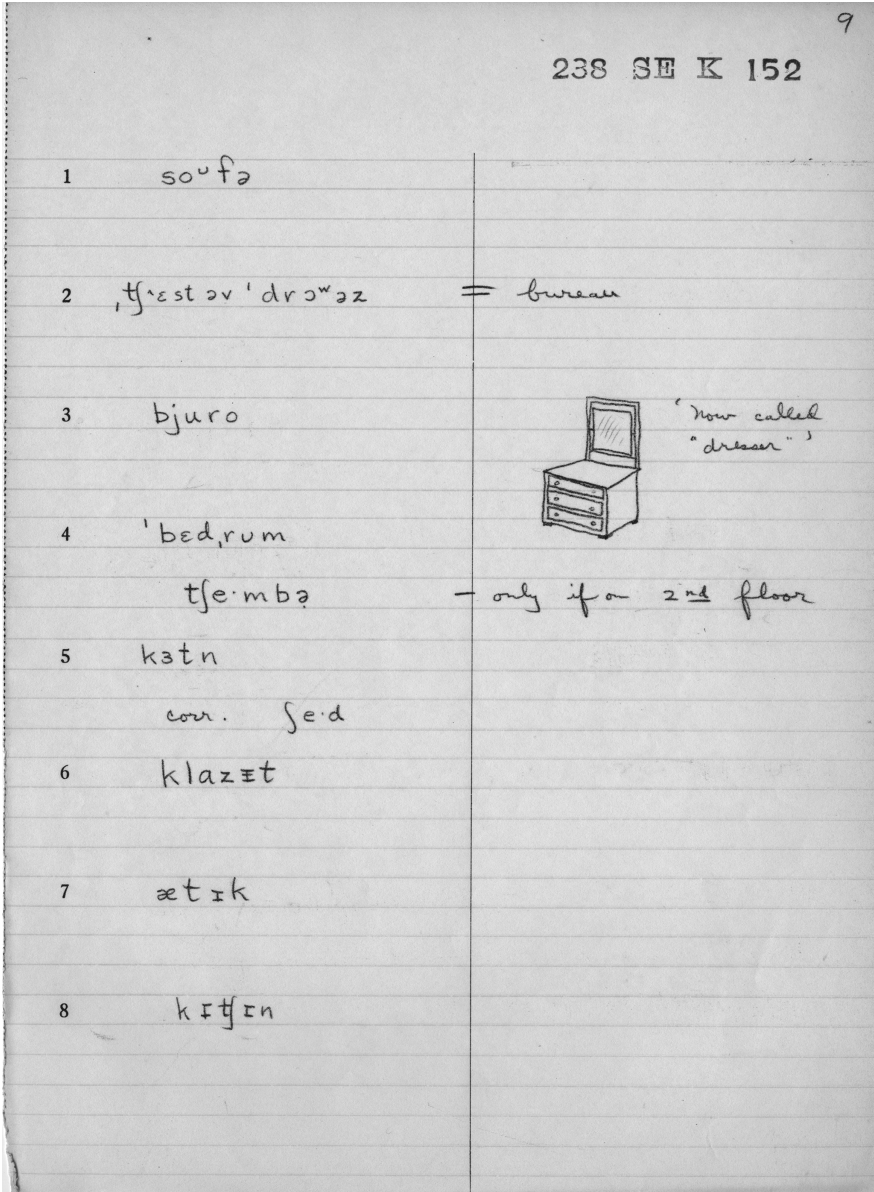 9
238 SE K 152
1 soᶷfə
2 ˌtʃ˄ɛst əv ˈdrɔʷəz = bureau
3 bjuro 'now called
"dresser"'
4 ˈbɛdˌrʊm
tʃe·mbə̣ – only if on 2nd floor
5 kɜtn
corr. ʃe·d
6 klazᵻt
7 ætɪk
8 kɪtʃɪn